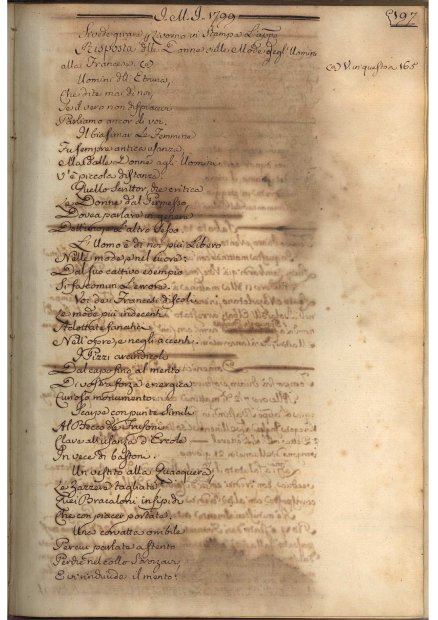 I. M. I. 1799
197
Si vede girare per Livorno in Stampa l'app.
Risposta delle Donne sulle Mode degl'Uomini
alla Francese. (a)
(a) V. in questo a 165
Uomini dell'Etruria,
Che dite mai di noi,
Se il vero non dispiace
Parliamo ancor di voi.
Il biasimar le Femmine
Fu sempre antica usanza,
Ma dalle Donne agli Uomini
V'è piccola distanza.
Quello Scrittor, che critica
Le Donne dal Permesso,
Dovea parlare in genere
Dell'uno, e l'altro Sesso.
L'Uomo è di noi più libero
Nelle mode, e nel cuore:
Dal suo cattivo esempio
Si fa comun l'errore.
Voi dei Francesi discoli
Le mode più indecenti
Adottate fanatici
Nell'opre, e negli accenti.
Pizzi a
Dal capo fino al mento
Di vostra forza energica
Curioso monumento.
Scarpe con punte simili
Al Becco de Frusoni
Clave all'usanza d'Ercole
In vece di bastoni.
Un vestito alla Quacquera,
Le Zazzere tagliate
Quei Bracaloni insipidi
Che con piacer portate.
Una corvatta orribile
Per cui parlate a stento
Perdé nel collo
E vi il mento: